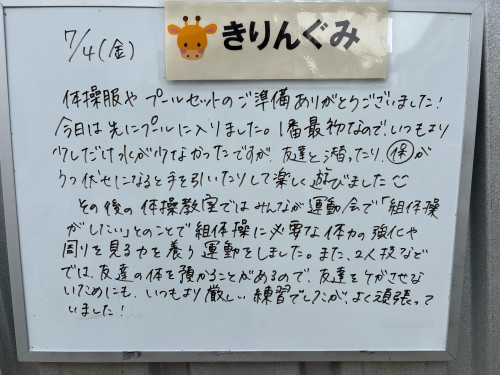 7/4(金)
きりんぐみ
体操服や プールセットのご準備ありがとうございました!
今日は先にプールに入りました。1番最初なので、いつもより
少しだけ水が少なかったですが、友達と潜ったり、保が
うつ伏せになると手を引いたりして楽しく遊びました
その後の体操教室ではみんなが運動会で「組体操
がしたい」とのことで組体操に必要な体力の強化や
周りを見る力を養う運動をしました。また、2人技などで
では、友達の体を預かることがあるので、友達をケガさせな
いためにも、いつもより厳しい練習でしたが、よく頑張って
いました!